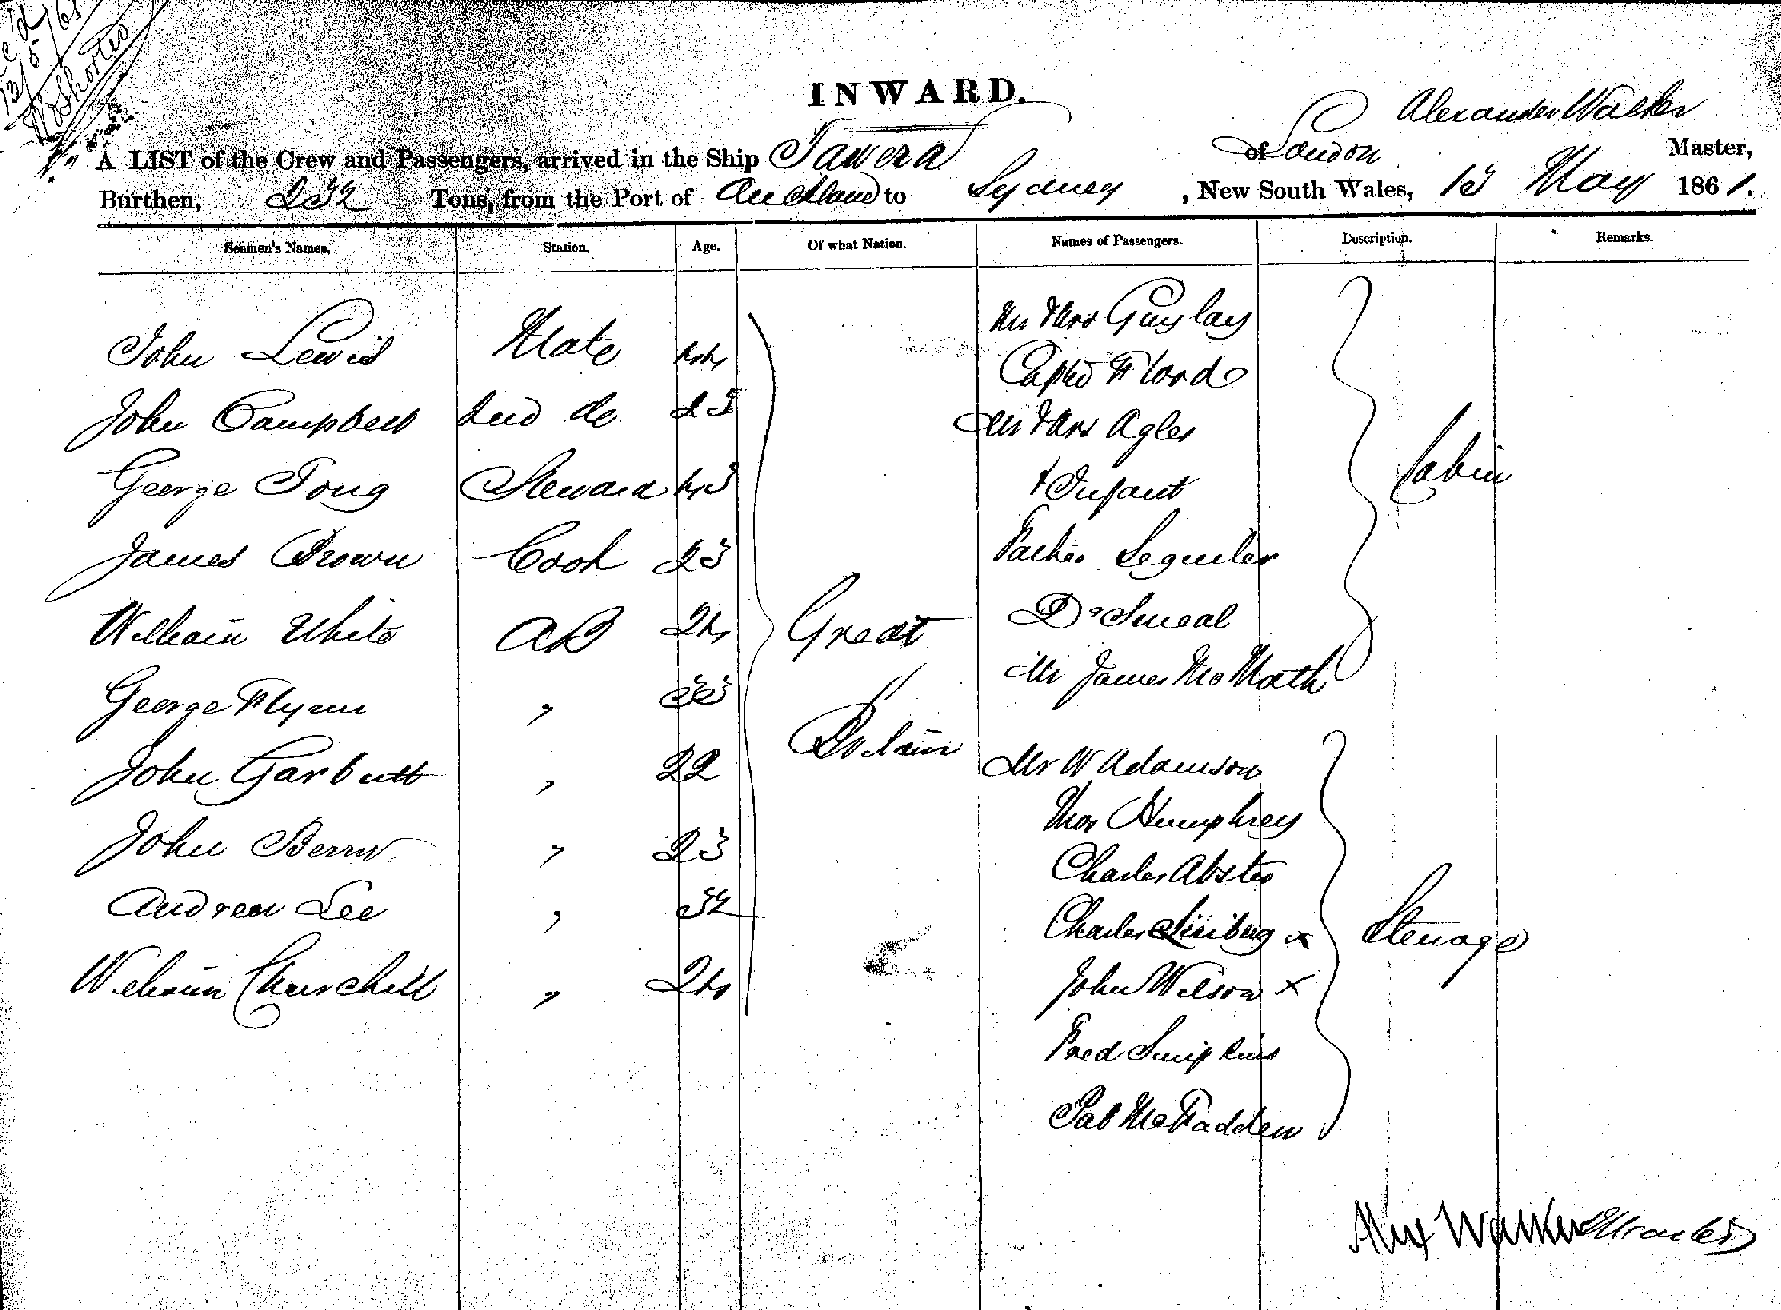 INWARD.
Alexander Walker
A LIST of the Crew and Passengers, arrived in the Ship Tawera of London Master,
Burthen, 232 Tons, from the Port of Auckland to Sydney, New South Wales, 13 May 1861.
Seamen's Names. Station. Age. Of what Nation. Names of Passengers. Description. Remarks.
Mr & Mrs Gaylay
John Lewis Mate 44
Capt Flord
John Campbell 2nd do 23
Mr & Mrs Agler
George Tong Steward 43
& Infant
Cabin
James Brown Cook 23
William White AB 24 Great
Dr Smeal
Mr James McMath
George Flynn " 33
Britain
John Garbutt " 22
Mr W Adamson
Thos Humphrey
John " 23
Charles
Andrew Lee " 32
Charles x
Steerage
William Churchill " 24
John Wilson x
Fred Simpkins
Pat McFadden
Alex Walker Master